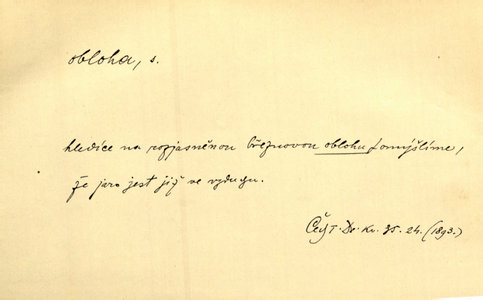 obloha, s.
hledíce na rozjasněnou březnovou oblohu pomýšlíme,
že jaro jest již ve vzduchu.
24. (1893.)